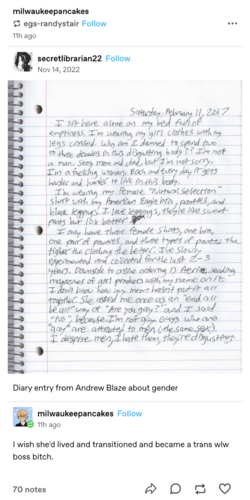 milwaukeepancakes
egs-randystair Follow
11h ago
secretlibrarian22 Follow
Nov 14, 2022
Saturday, February 11, 2017
I sit here alone on my bed full of
emptiness. I'm wearing my girl clothes with my
legs crossed. Why am I doomed to spend two
to three decades in this disgusting body?? I'm not
a man. Sorry mom and dad, but I'm not sorry.
I'm a fucking woman. Each and every day it gets
harder and harder to live in this body.
I'm wearing my female "Natural Selection"
shirt with my American Eagle bra, panties, and
black leggings. I love leggings, they're like sweat
pants but 10x better.
I only have three female shirts, one bra,
one pair of panties, and three types of pants. The
tighter the clothing the better. I've slowly
experimented and collected for the last 2-3
years. Downside to online ordering is sending
magazines of girl products with my name on it.
I don't know how my mom hasn't put it all
together. She asked me once as an "end all
be all" way of "Are you gay?" and I said
"No", because I'm not gay. Guys who are
"gay" are attracted to men (the same sex).
I despise men, I hate them, they're disgusting.
Diary entry from Andrew Blaze about gender
milwaukeepancakes Follow
11h ago
I wish she'd lived and transitioned and became a trans wlw
boss bitch.
70 notes